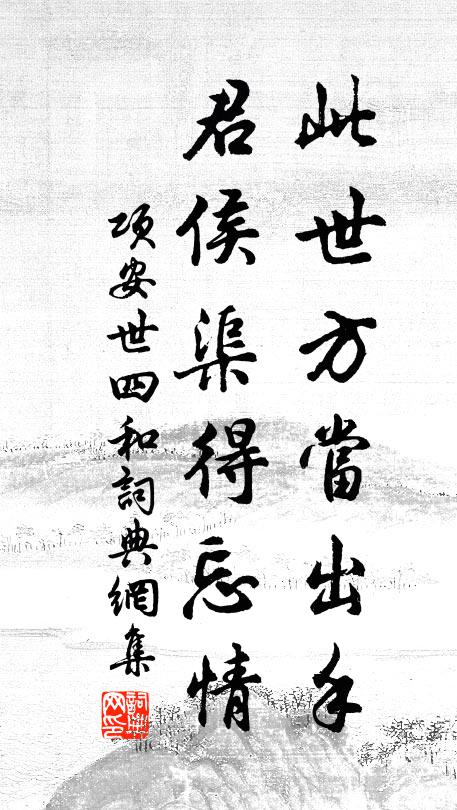 此世方當出手
君侯渠得忘情
項安世四和詞典網集